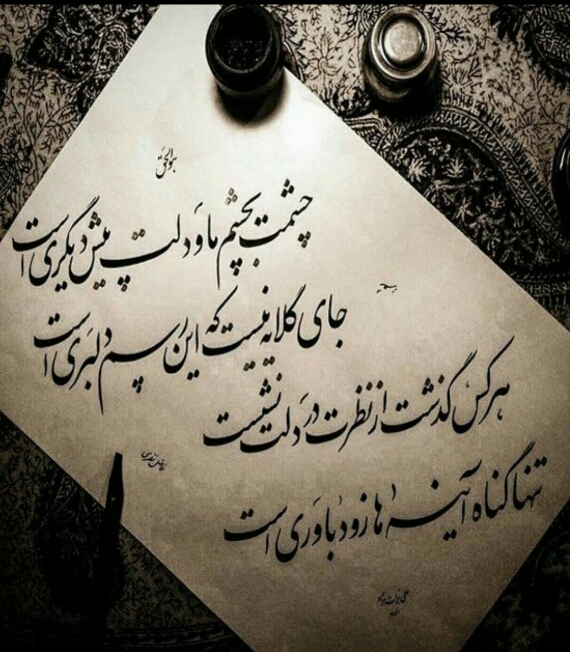 هوالحق
چشمت بچشم ما و دلت پیش دیگری است
جای گلایه نیست که این رسم دلبری است
هرکس گذشت از نظرت در دلت نشست
تنها گناه آینه‌ها زودباوری است